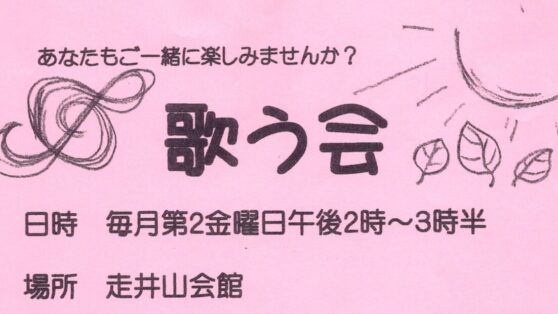 あなたもご一緒に楽しみませんか？
歌う会
日時　毎月第2金曜日午後2時～3時半
場所　走井山会館